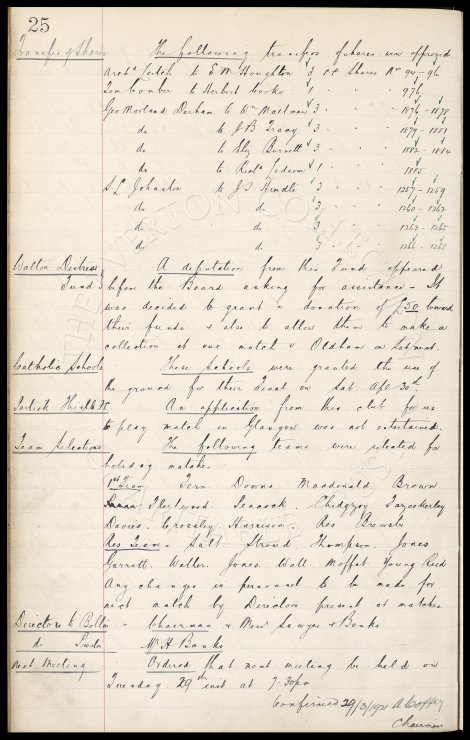 25
Transfer of Shares The following transfers of shares were approved.
Archd Leitch to E M Houghton 3 shares Nos 94 - 96
Tom Comber to Herbert Cooke 1 " " 976
Geo Morland Derham to Wm 3 " " 1876 - 1878
do to J B Tracy 3 " " 1879 - 1881
do to Eliz Burnett 3 " " 1882 - 1884
do to Robt 1 " " 1885
S L Johnston to J S Kendle 3 " " 1257 - 1259
do do 3 " " 1260 - 1262
do do 3 " " 1263 - 1265
do do 3 " " 1266 - 1268
Walton Distress A deputation from this Fund appeared
Fund before the Board asking for assistance - It
was decided to grant a donation of £50 toward
their funds & also to allow them to make a
collection at our match v Oldham on Sat next.
Catholic Schools These schools were granted the use of
the ground for their Final on Sat Apl 30th
Partick Thistle FC An application from this club for us
to play match in Glasgow was not entertained.
Team Selections The following teams were selected for
holiday matches.
1st Team Fern Downs Macdonald Brown
Fleetwood Peacock Chedgzoy Fazackerley
Davies Crossley Harrison. Res Brewster
Res Team - Salt Stroud Thompson Jones
Garrett. Waller. Jones. Wall. Moffat Young Reid
Any changes in personnel to be made for
next match by Directors present at matches.
Directors to Bolton - Chairman & Messrs Sawyer & Banks
do Mr H Banks
Next Meeting Ordered that next meeting be held on
Tuesday 29th inst at 7.30pm
Confirmed 29/3/1921 A Coffey
Chairman